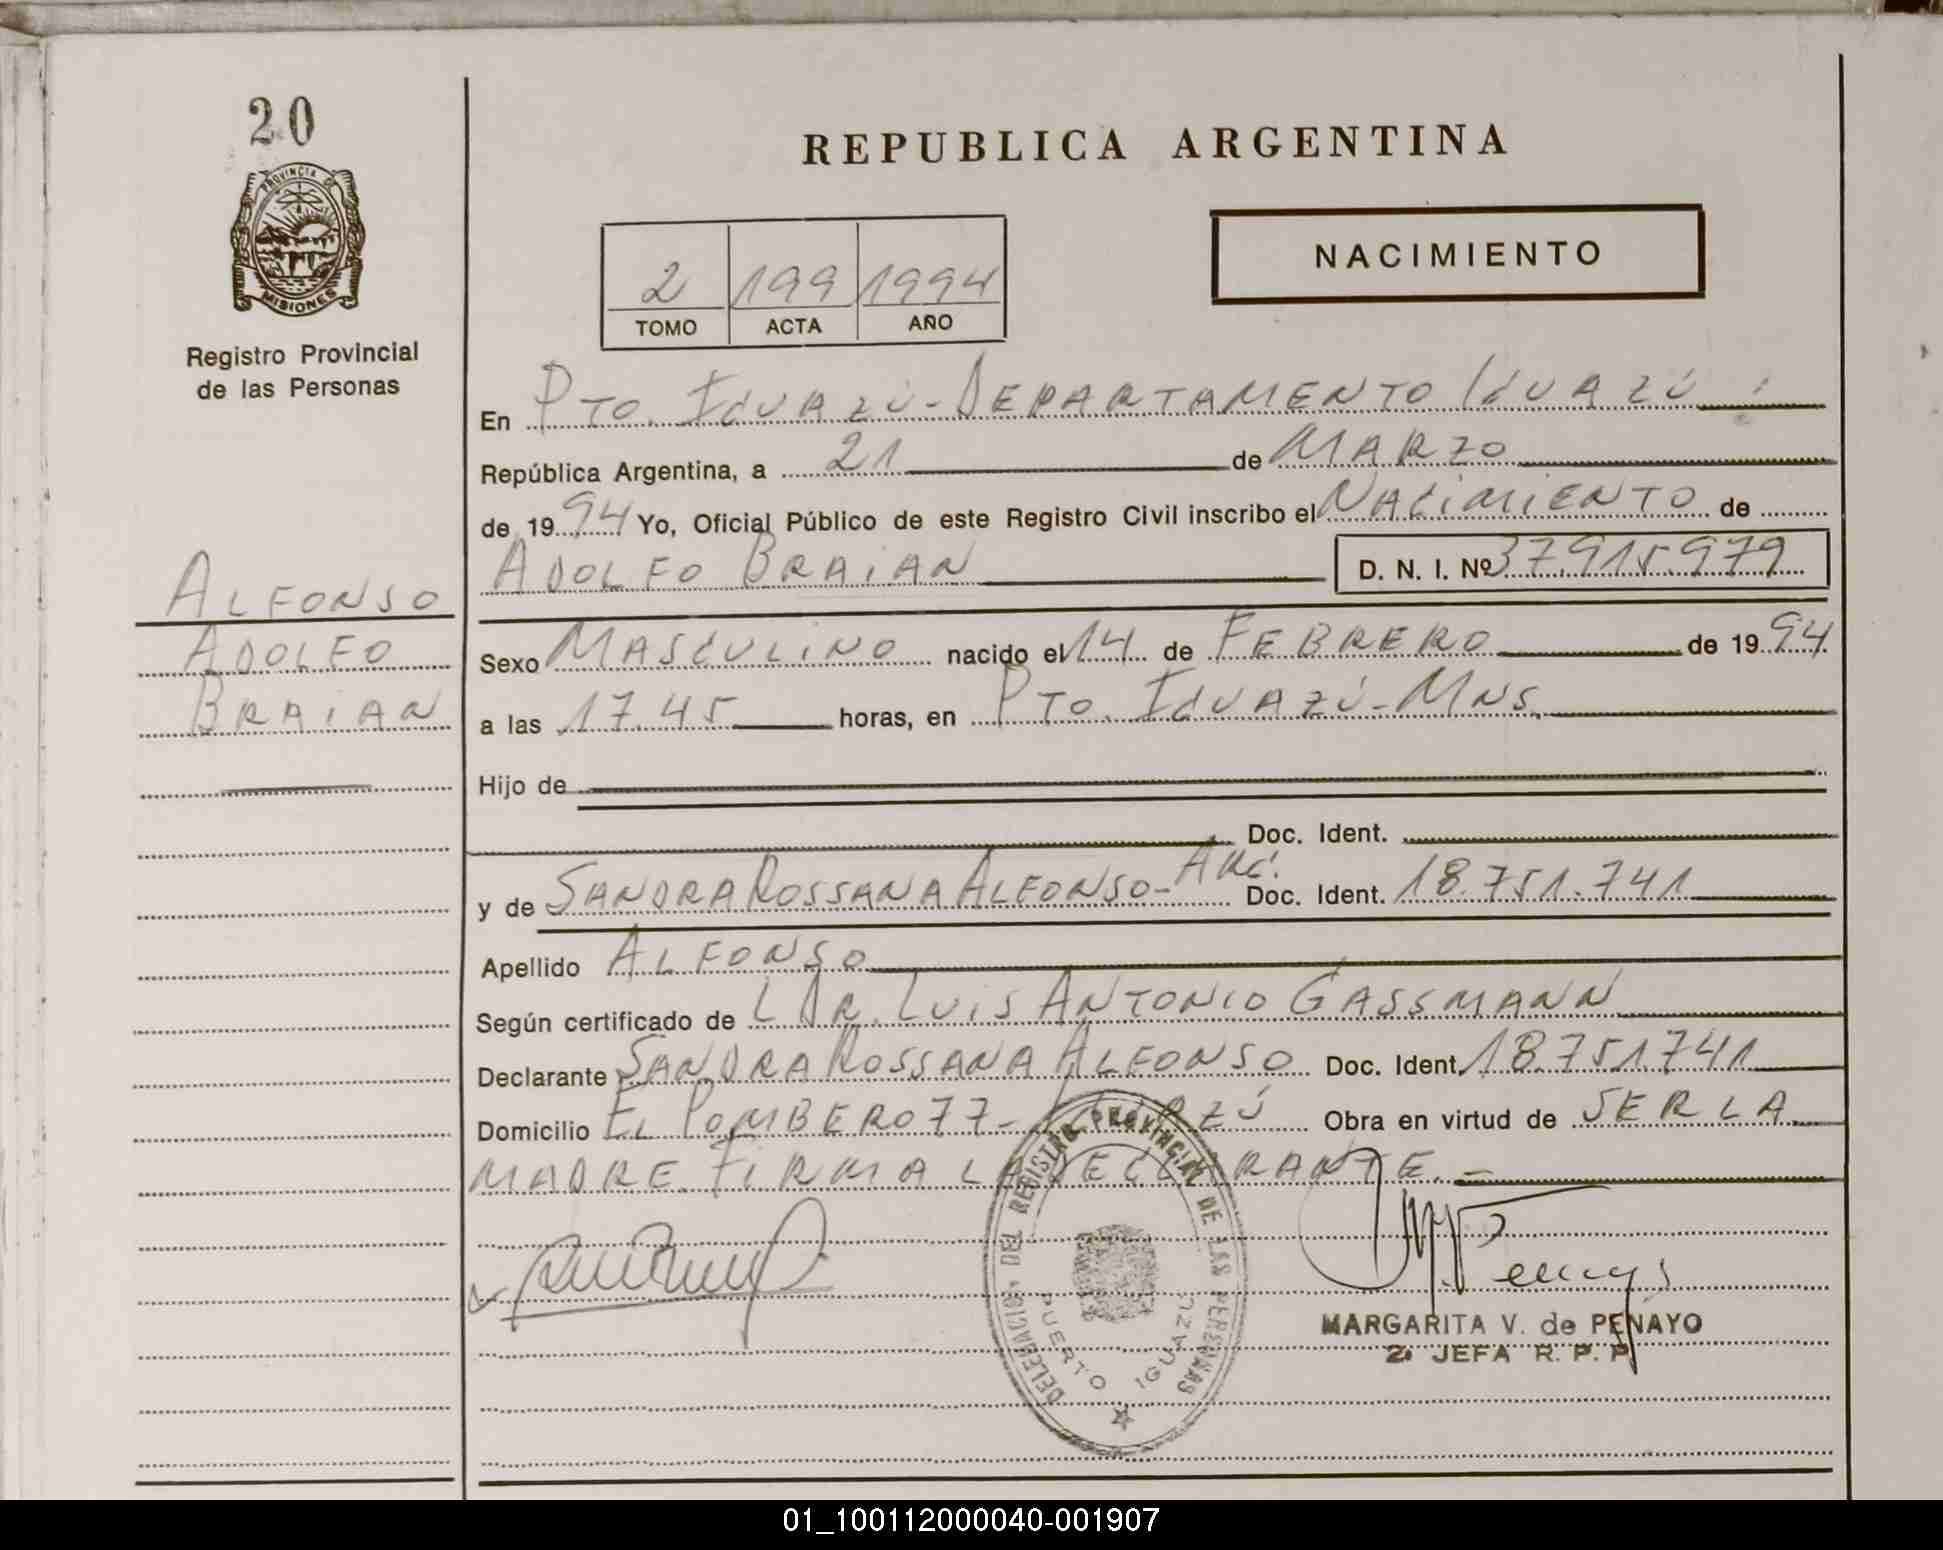 20
PROVINCIA DE
MISIONES
Registro Provincial
de las Personas
ALFONSO
ADOLFO
BRAIAN
REPUBLICA ARGENTINA
2 199 1994
TOMO ACTA AÑO
NACIMIENTO
En PTO. IGUAZÚ - DEPARTAMENTO IGUAZÚ
República Argentina, a 21 de MARZO
de 1994 Yo, Oficial Público de este Registro Civil inscribo el NACIMIENTO de
ADOLFO BRAIAN D. N. I. Nº 37.915.979
Sexo MASCULINO nacido el 14 de FEBRERO de 1994
a las 17.45 horas, en PTO. IGUAZÚ - MNS.
Hijo de
Doc. Ident.
y de SANDRA ROSSANA ALFONSO - ARG. Doc. Ident. 18.751.741
Apellido ALFONSO
Según certificado de DR. LUIS ANTONIO GASSMANN
Declarante SANDRA ROSSANA ALFONSO Doc. Ident. 18.751.741
Domicilio EL POMBERO 77 - IGUAZÚ Obra en virtud de SER LA
MADRE. FIRMA LA DECLARANTE. -
DELEGACION DEL REGISTRO PROVINCIAL DE LAS PERSONAS
PUERTO IGUAZU
MARGARITA V. de PENAYO
2ª JEFA R. P. P.
01_100112000040-001907